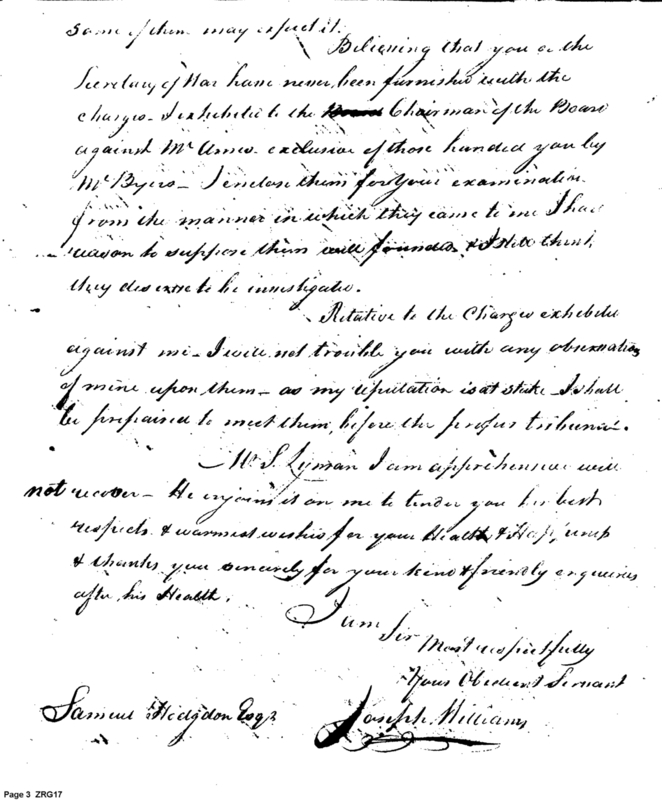 some of them may expect it.
Believing that you or the
Secretary of War have never been furnished with the
charges I exhibited to the Board Chairman of the Board
against Mr Ames exclusive of those handed you by
Mr Byers - I enclose them for your examination
from the manner in which they came to me I had
reason to suppose them well founded & I still think
they deserve to be investigated.
Relative to the Charges exhibited
against me - I will not trouble you with any observations
of mine upon them - as my reputation is at stake I shall
be prepaired to meet them, before the proper tribunal.
Mr S. Lyman I am apprehensive will
not recover - He enjoins it on me to tender you his best
respects & warmest wishes for your Health & Happiness
& thanks you sincerely for your kind & friendly enquiries
after his Health.
I am Sir
Most respectfully
Your Obedient Servant
Samuel Hodgdon Esqr. Joseph Williams
Page 3 ZRG17